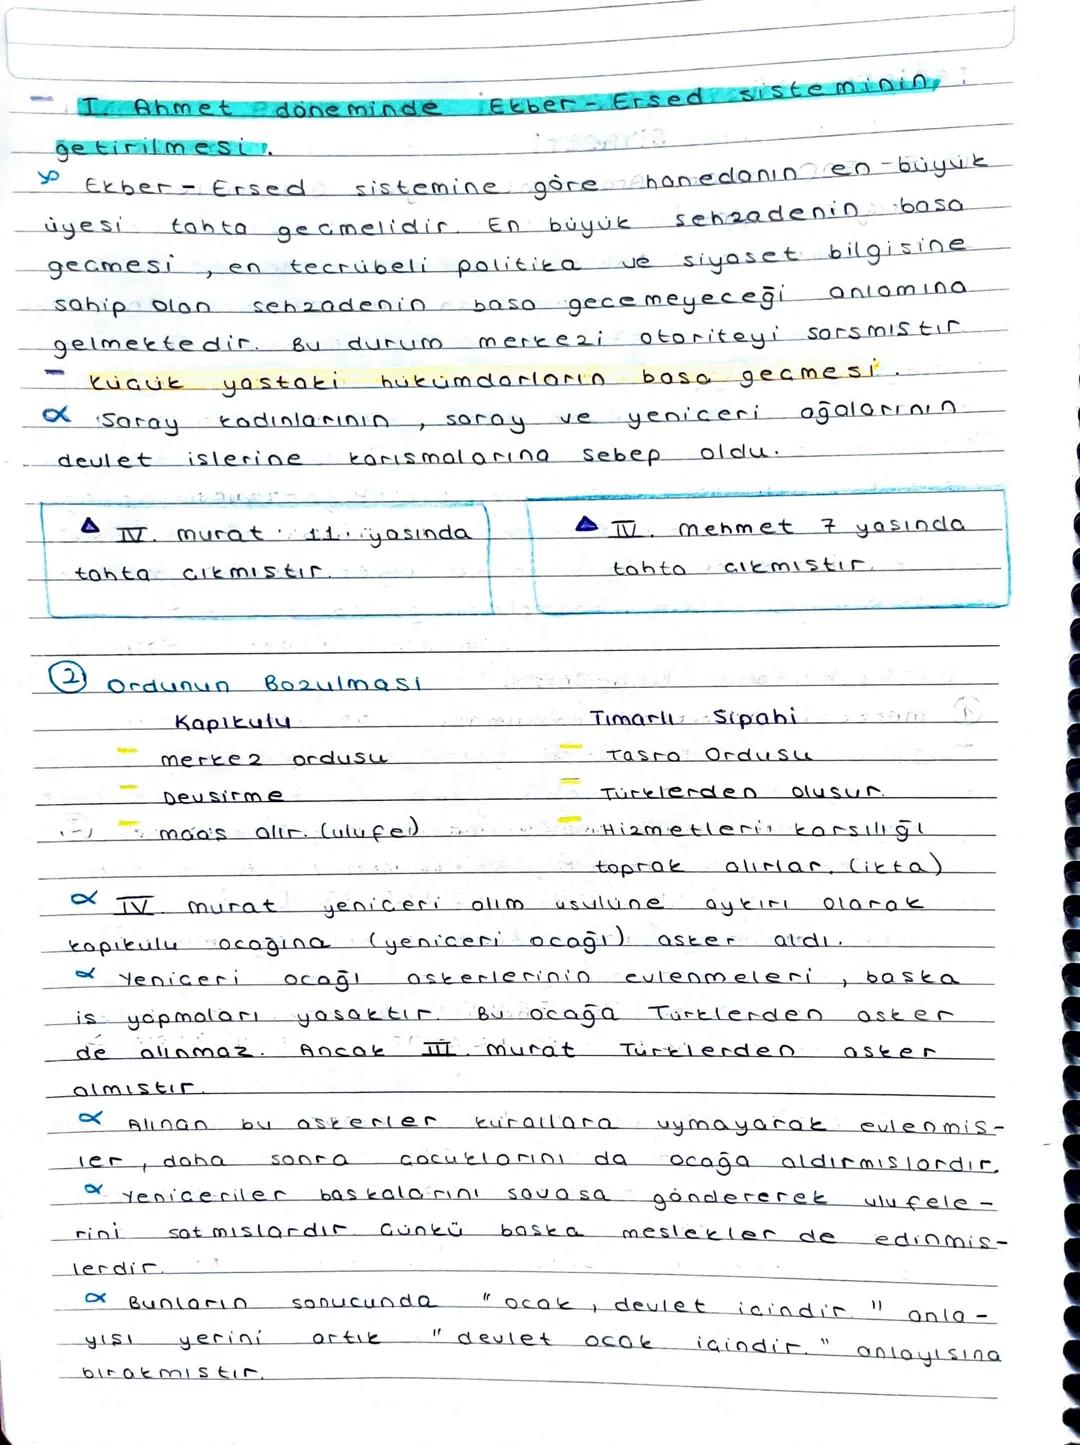 - I. Ahmet döneminde Ekber-Ersed sisteminin
getirilmesi.
Ekber-Ersed sistemine göre hanedanın en büyük
üyesi tahta gecmelidir. En büyük sehzadenin basa
gecmesi, en tecrübeli politika ve siyaset bilgisine
sahip olan sehzadenin basa gecemeyeceği anlamına
gelmektedir. Bu durum merkezi otoriteyi sarsmıstır
- Kücük yastaki hükümdarların basa gecmesi.
α Saray kadınlarının, saray ve yeniceri ağalarının
devlet islerine karısmalarına sebep oldu.
△ IV. murat 11. yasında
tahta cıkmıstır.
△ IV. mehmet 7 yasında
tahta cıkmıstır.
② Ordunun Bozulması
Kapıkulu
- merkez ordusu
- Devsirme
- maas alır. (ulufe)
Tımarlı Sipahi
- Tasra Ordusu
- Türklerden olusur.
- Hizmetleri karsılığı
toprak alırlar. (ikta)
α IV murat yeniceri alım usulüne aykırı olarak
kapıkulu ocağına (yeniceri ocağı) asker aldı.
α Yeniceri ocağı askerlerinin evlenmeleri, baska
is yapmaları yasaktır. Bu ocağa Türklerden asker
de alınmaz. Ancak III. Murat Türklerden asker
almıstır.
α Alınan bu askerler kurallara uymayarak evlenmis-
ler, daha sonra cocuklarını da ocağa aldırmıslardır.
α Yeniceriler baskalarını savasa göndererek ulufele-
rini satmıslardır. Cünkü baska meslekler de edinmis-
lerdir.
α Bunların sonucunda "ocak, devlet icindir." anla-
yısı yerini artık "devlet ocak icindir." anlayısına
bırakmıstır.